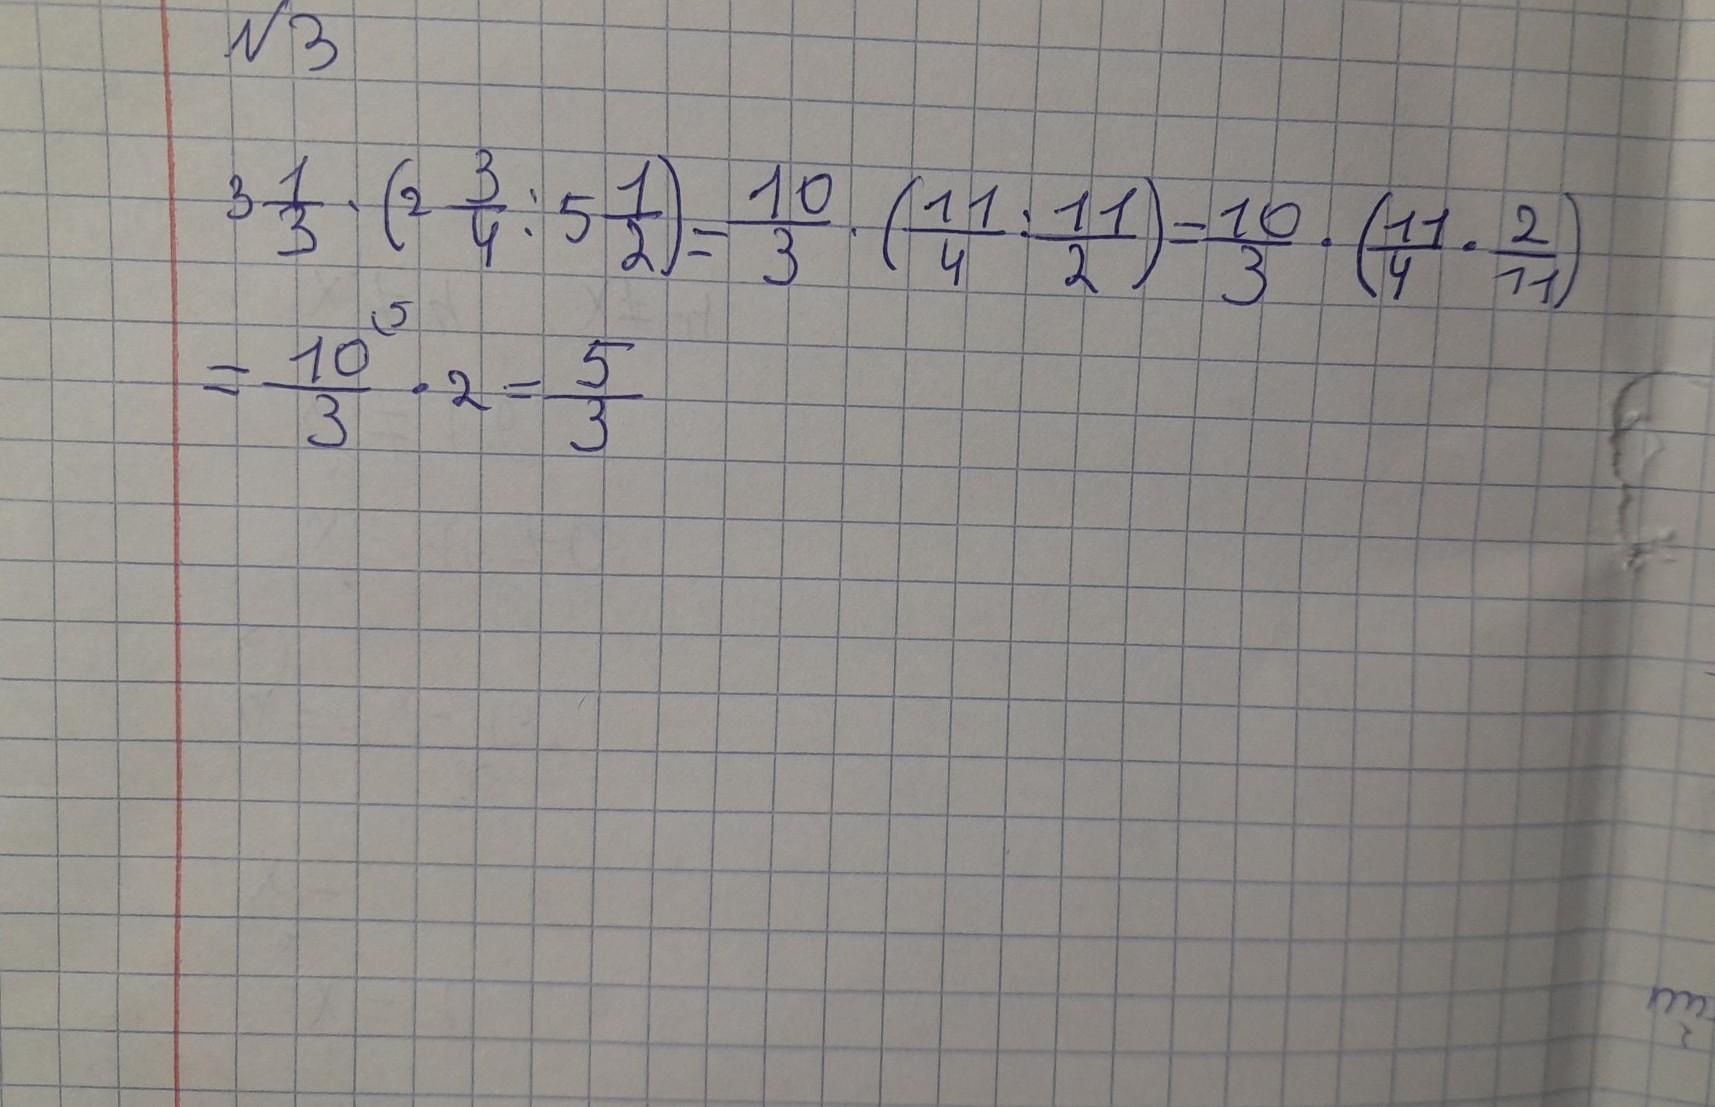 №3
3 1/3 · (2 3/4 : 5 1/2) = 10/3 · (11/4 : 11/2) = 10/3 · (11/4 · 2/11)
= 10/3 (5 · 2 = 5/3